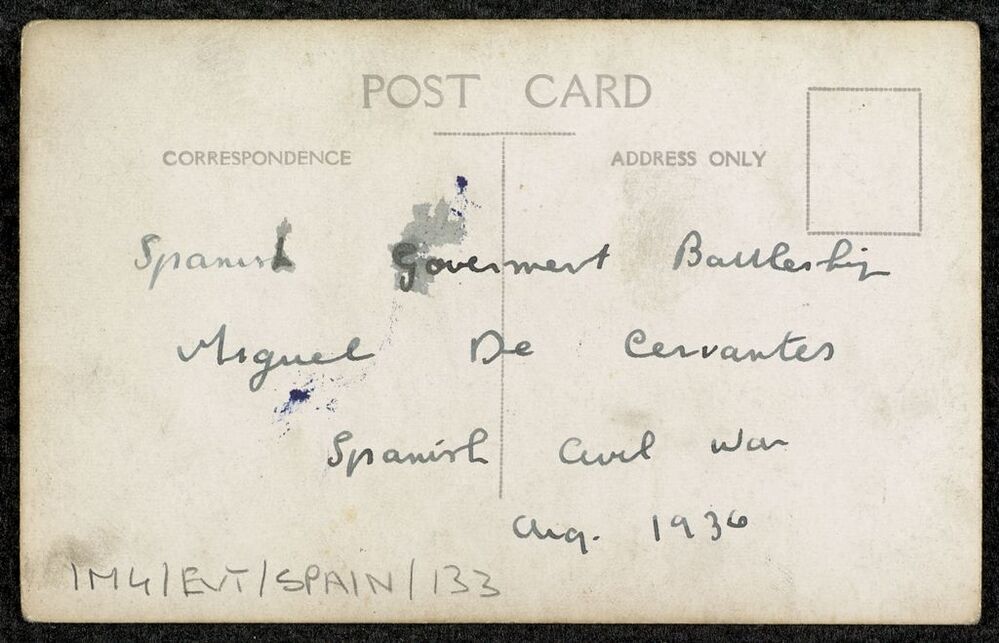 POST CARD
CORRESPONDENCE
ADDRESS ONLY
Spanish Goverment Battleship
Miguel De Cervantes
Spanish Civil War
Aug. 1936
1M4/EVT/SPAIN/133